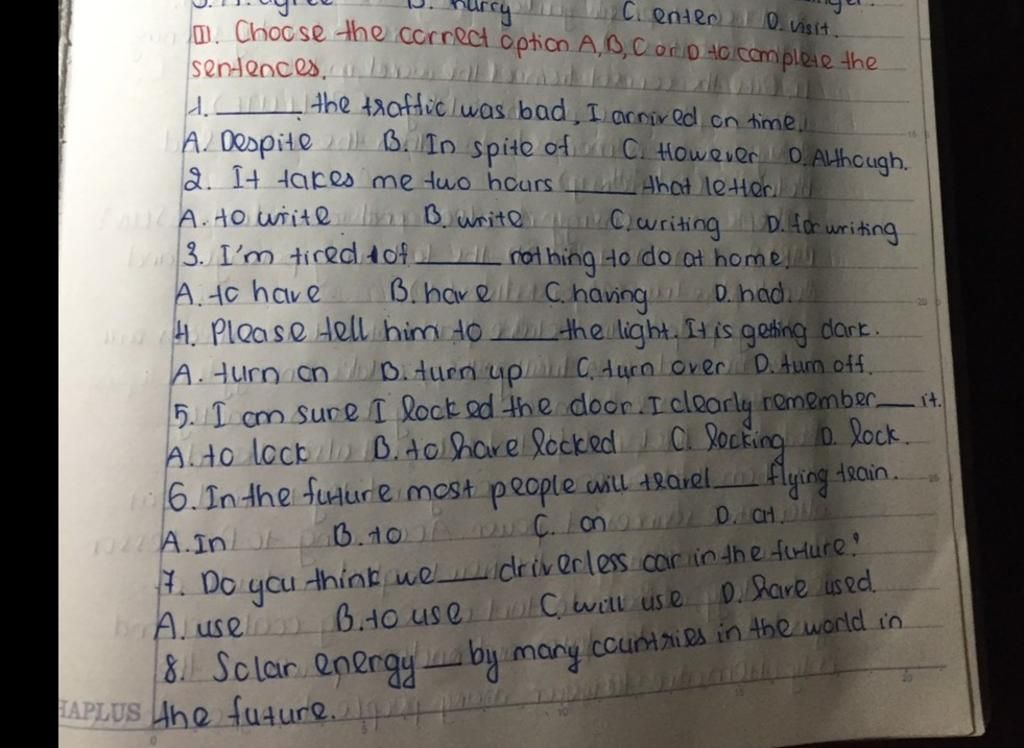 agree B. hurry C. enter D. visit.
III. Choose the correct option A, B, C or D to complete the
sentences.
1. ____ the traffic was bad, I arrived on time.
A. Despite B. In spite of C. However D. Although.
2. It takes me two hours ____ that letter.
A. to write B. write C. writing D. for writing
3. I'm tired of ____ nothing to do at home.
A. to have B. have C. having D. had.
4. Please tell him to ____ the light. It is getting dark.
A. turn on B. turn up C. turn over D. turn off.
5. I am sure I locked the door. I clearly remember ____ it.
A. to lock B. to have locked C. locking D. lock.
6. In the future most people will travel ____ flying train.
A. In B. to C. on D. at.
7. Do you think we ____ driverless car in the future?
A. use B. to use C. will use D. have used.
8. Solar energy ____ by many countries in the world in
the future.
HAPLUS